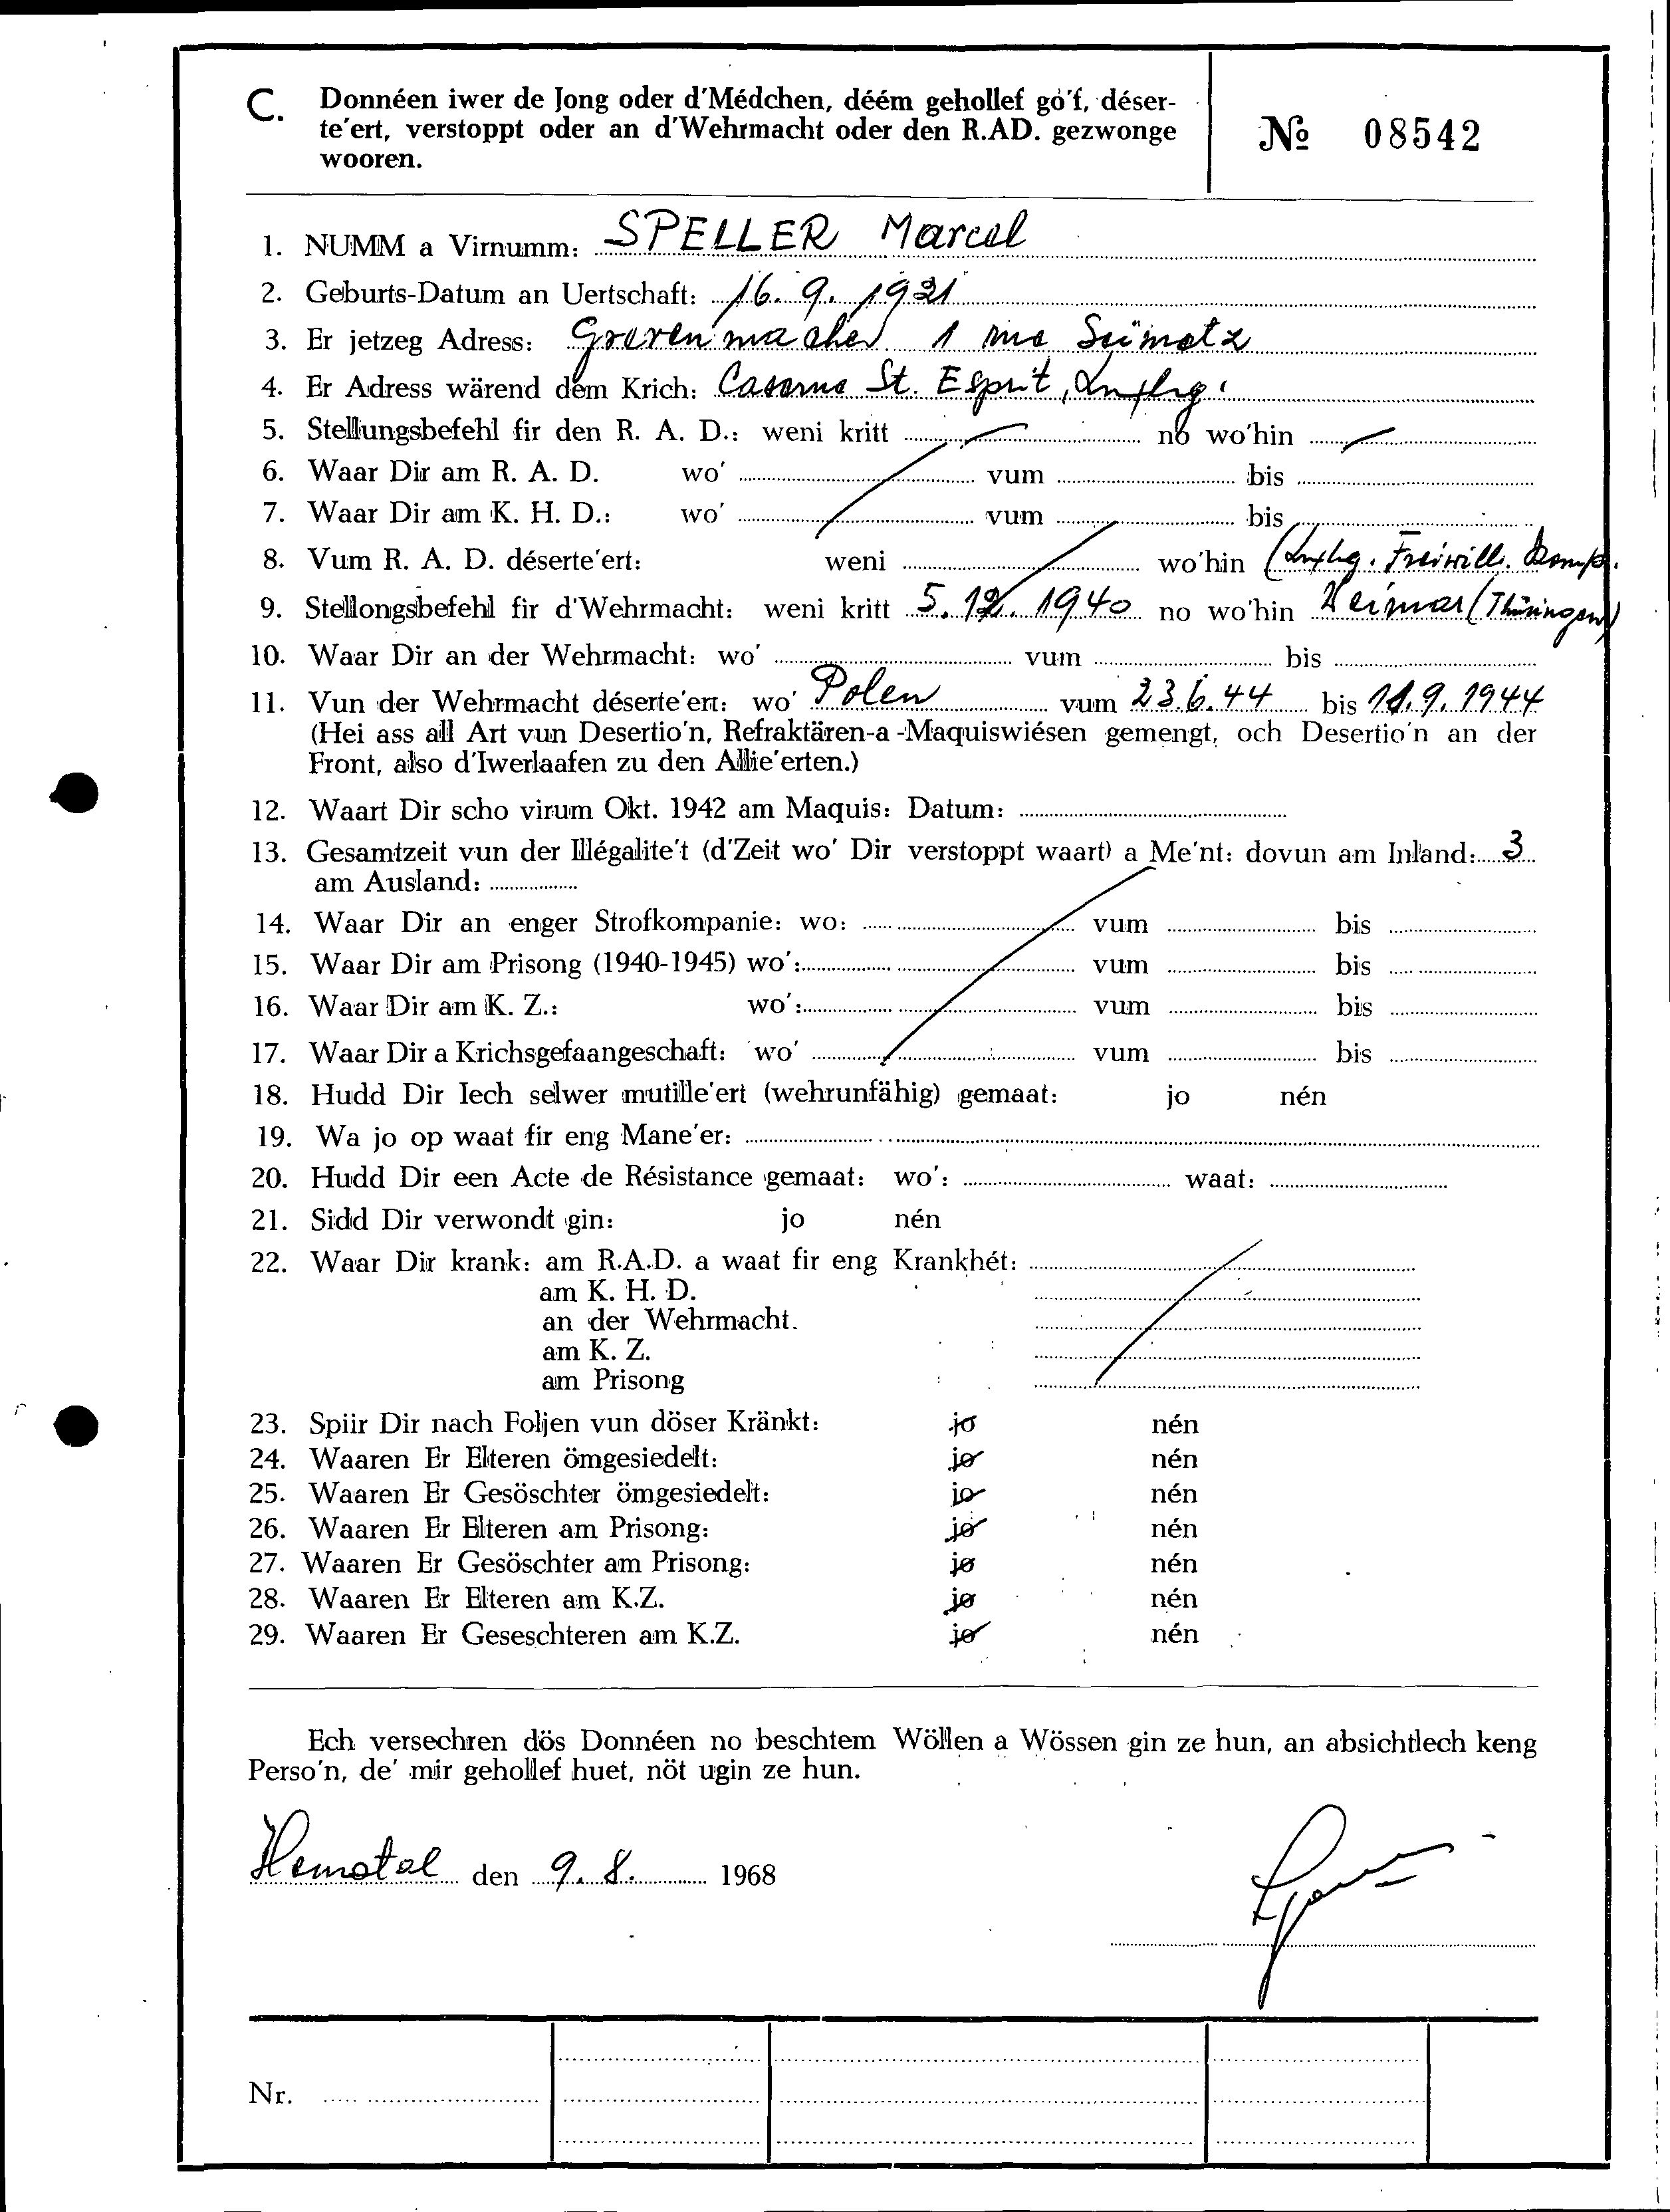 C. Donnéen iwer de Jong oder d'Médchen, déém gehollef go'f, déser-
te'ert, verstoppt oder an d'Wehrmacht oder den R.AD. gezwonge
wooren.
№ 08542
1. NUMM a Virnumm: SPELLER Marcel
2. Geburts-Datum an Uertschaft: 16. 9. 1921
3. Er jetzeg Adress: Grevenmacher 1 rue
4. Er Adress wärend dem Krich: Caserne St. Esprit, Luxbg.
5. Stellungsbefehl fir den R. A. D.: weni kritt no wo'hin
6. Waar Dir am R. A. D. wo' vum bis
7. Waar Dir am K. H. D.: wo' vum bis
8. Vum R. A. D. déserte'ert: weni wo'hin (Luxbg. Freiwill. Komp.
9. Stellongsbefehl fir d'Wehrmacht: weni kritt 5. 12. 1940 no wo'hin Weimar (Thüringen)
10. Waar Dir an der Wehrmacht: wo' vum bis
11. Vun der Wehrmacht déserte'ert: wo' Polen vum 23.6.44 bis 11.9.1944
(Hei ass all Art vun Desertio'n, Refraktären-a-Maquiswiésen gemengt, och Desertio'n an der
Front, also d'Iwerlaafen zu den Allie'erten.)
12. Waart Dir scho virum Okt. 1942 am Maquis: Datum:
13. Gesamtzeit vun der Illégalite't (d'Zeit wo' Dir verstoppt waart) a Me'nt: dovun am Inland: 3
am Ausland:
14. Waar Dir an enger Strofkompanie: wo: vum bis
15. Waar Dir am Prisong (1940-1945) wo': vum bis
16. Waar Dir am K. Z.: wo': vum bis
17. Waar Dir a Krichsgefaangeschaft: wo' vum bis
18. Hudd Dir Iech selwer mutille'ert (wehrunfähig) gemaat: jo nén
19. Wa jo op waat fir eng Mane'er:
20. Hudd Dir een Acte de Résistance gemaat: wo': waat:
21. Sidd Dir verwondt gin: jo nén
22. Waar Dir krank: am R.A.D. a waat fir eng Krankhét:
am K. H. D.
an der Wehrmacht.
am K. Z.
am Prisong
23. Spiir Dir nach Foljen vun döser Kränkt: jo nén
24. Waaren Er Elteren ömgesiedelt: jo nén
25. Waaren Er Gesöschter ömgesiedelt: jo nén
26. Waaren Er Elteren am Prisong: jo nén
27. Waaren Er Gesöschter am Prisong: jo nén
28. Waaren Er Elteren am K.Z. jo nén
29. Waaren Er Geseschteren am K.Z. jo nén
Ech versechren dös Donnéen no beschtem Wöllen a Wössen gin ze hun, an absichtlech keng
Perso'n, de' mir gehollef huet, nöt ugin ze hun.
den 9. 8. 1968
Nr.